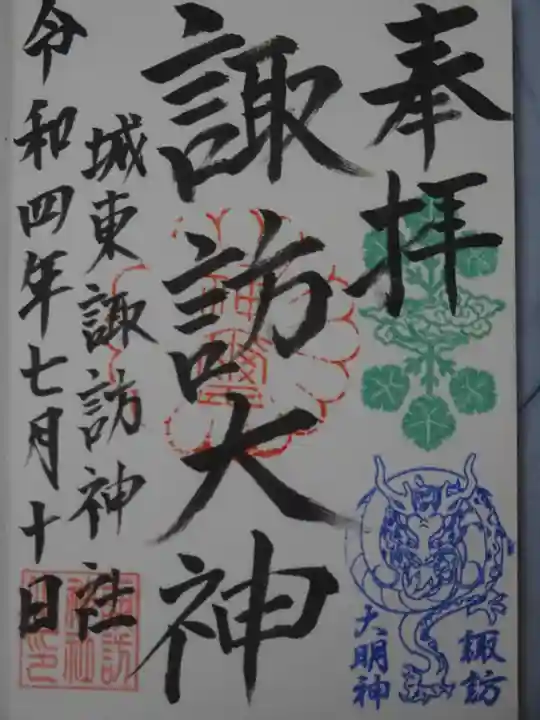 奉拝
諏訪大神
城東諏訪神社
令和四年七月十日
諏訪
大明神
神璽